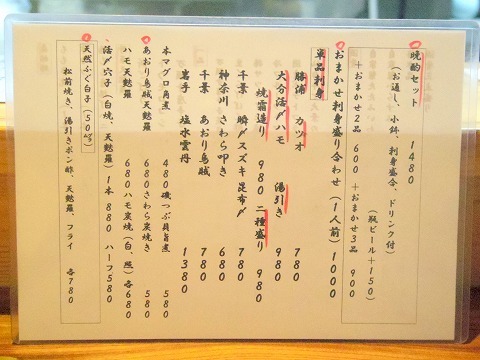 晩酌セット 1480
(お通し、小鉢、刺身盛合、ドリンク付)
(瓶ビール+150)
+おまかせ2品 600 +おまかせ3品 900
おまかせ刺身盛り合わせ(1人前) 1000
単品刺身
勝浦 カツオ 780
大分活〆ハモ 湯引き 980
焼霜造り 980 二種盛り 980
千葉 瞬〆スズキ昆布〆 780
神奈川 さわら叩き 680
千葉 あおり烏賊 780
岩手 塩水雲丹 1380
本マグロ角煮 480 磯つぶ貝旨煮 580
あおり烏賊天麩羅 680 さわら炭焼き 580
ハモ天麩羅 680 ハモ炭焼(白、照)各680
活〆穴子(白焼、天麩羅) 1本 880 ハーフ580
天然ふぐ白子(50㌘)
松前焼き、湯引きポン酢、天麩羅、フライ 各780